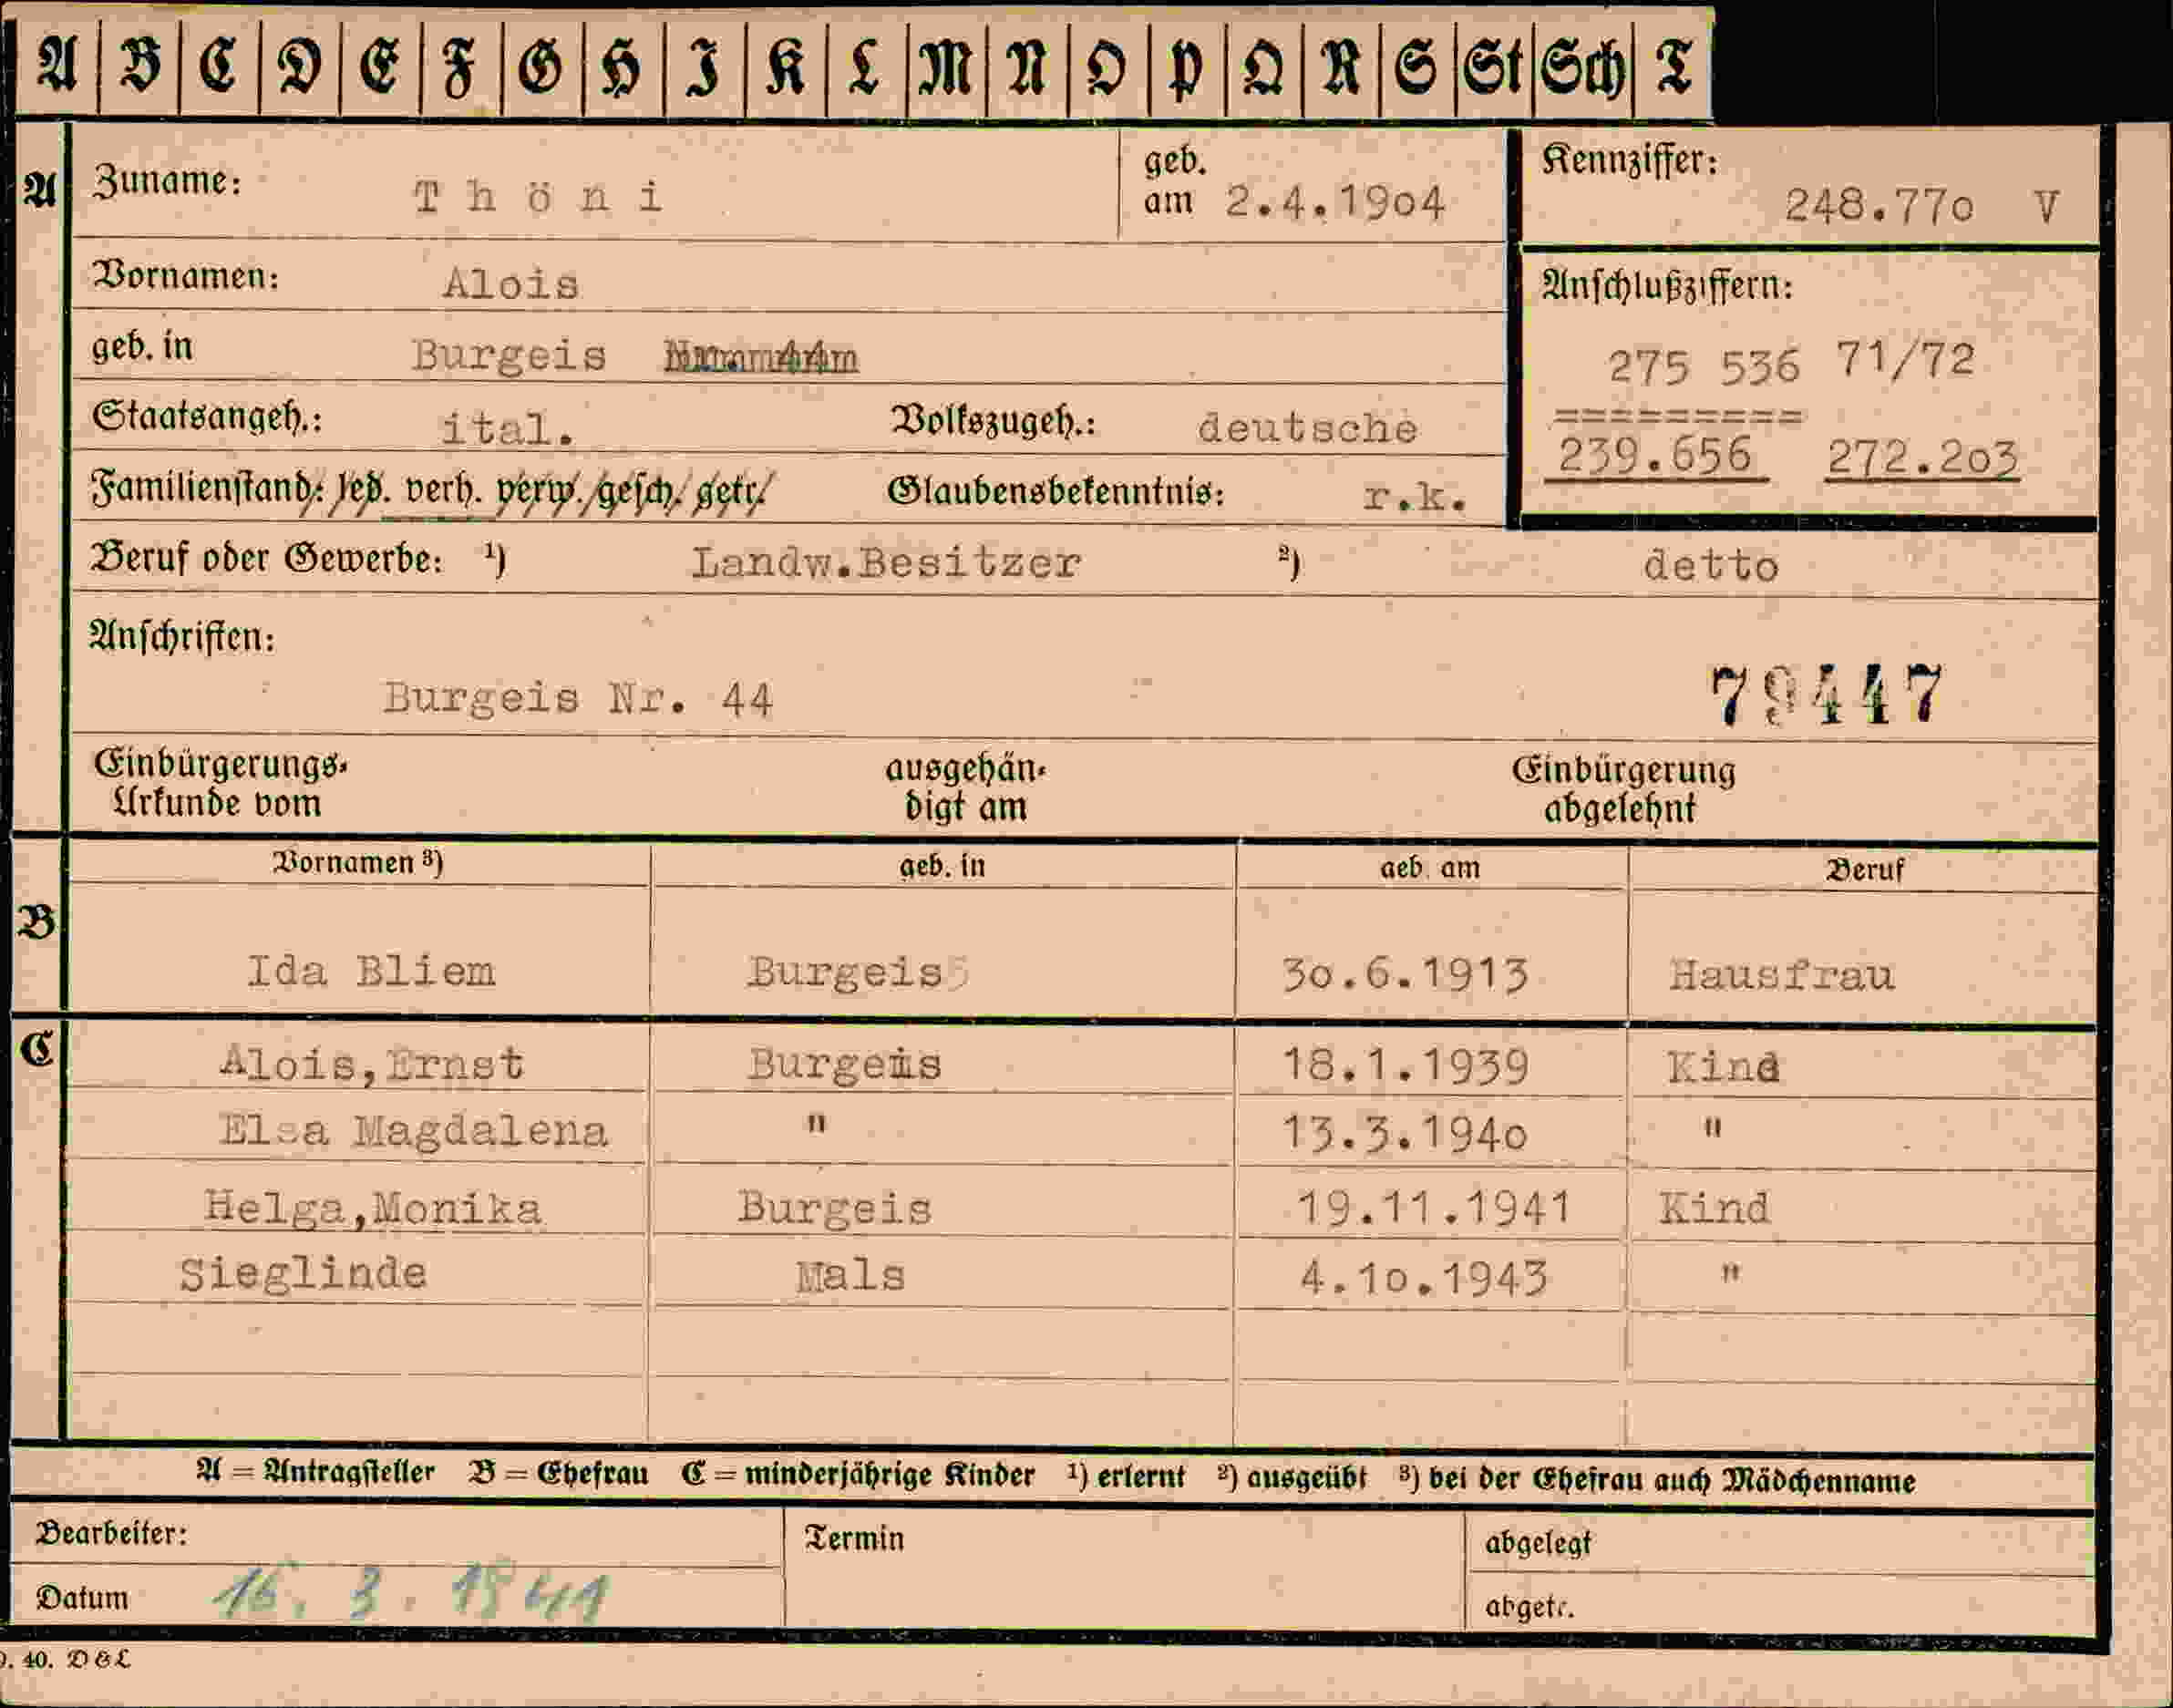 A B C D E F G H I K L M N O P Q R S St Sch T
A Zuname: Thöni geb. am 2.4.1904 Kennziffer: 248.770 V
Vornamen: Alois Anschlußziffern:
geb. in Burgeis 275 536 71/72
=========
Staatsangeh.: ital. Volkszugeh.: deutsche 239.656 272.203
Familienstand: led. verh. verw. gesch. getr. Glaubensbekenntnis: r.k.
Beruf oder Gewerbe: ¹) Landw.Besitzer ²) detto
Anschriften:
Burgeis Nr. 44 79447
Einbürgerungs- ausgehän- Einbürgerung
Urkunde vom digt am abgelehnt
Vornamen ³) geb. in geb. am Beruf
B
Ida Bliem Burgeis 30.6.1913 Hausfrau
C Alois,Ernst Burgeis 18.1.1939 Kind
Elsa Magdalena " 13.3.1940 "
Helga,Monika Burgeis 19.11.1941 Kind
Sieglinde Mals 4.10.1943 "
A = Antragsteller B = Ehefrau C = minderjährige Kinder ¹) erlernt ²) ausgeübt ³) bei der Ehefrau auch Mädchenname
Bearbeiter: Termin abgelegt
Datum 16. 3. 1941 abgetr.
40. D & L